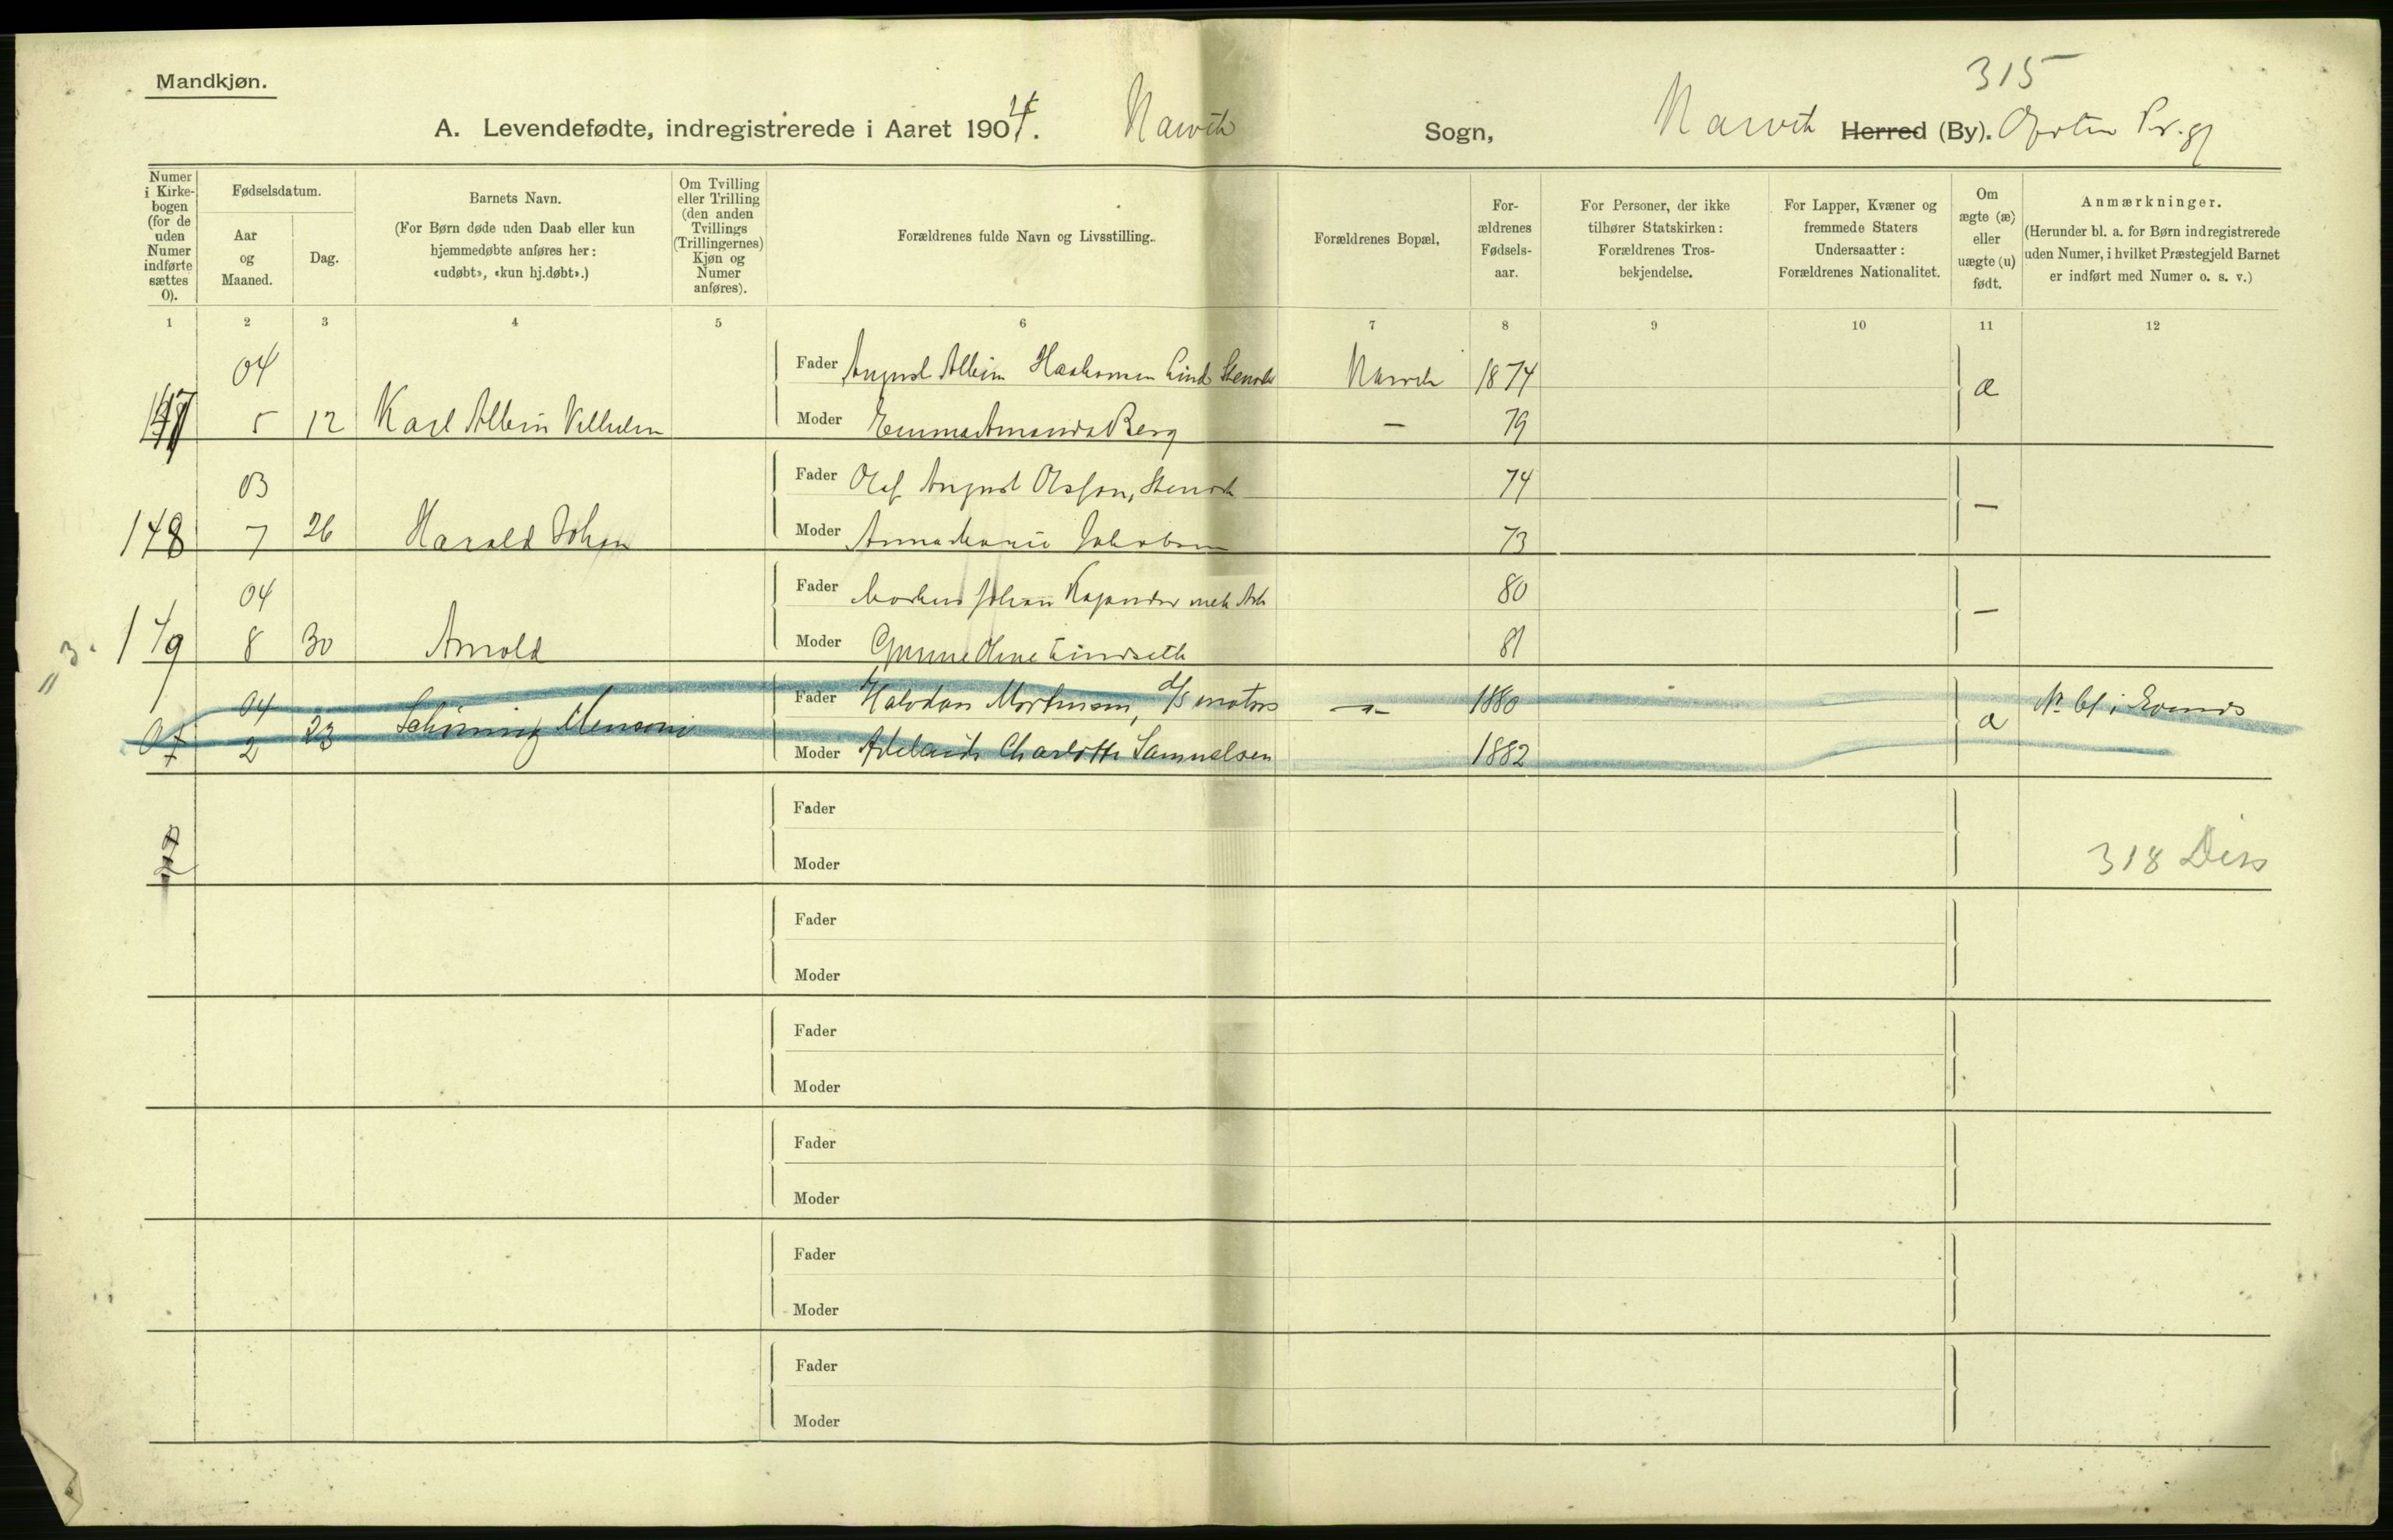 315
Mandkjøn.
A. Levendefødte, indregistrerede i Aaret 1904. Narvik Sogn, Narvik Herred (By). Ofoten Pr.gj
Numer i Kirke-bogen (for de uden Numer indførte sættes 0).
Fødselsdatum.
Aar og Maaned.
Dag.
Barnets Navn.
(For Børn døde uden Daab eller kun hjemmedøbte anføres her: «udøbt», «kun hj.døbt».)
Om Tvilling eller Trilling (den anden Tvillings (Trillingernes) Kjøn og Numer anføres).
Forældrenes fulde Navn og Livsstilling.
Forældrenes Bopæl.
For-ældrenes Fødsels-aar.
For Personer, der ikke tilhører Statskirken: Forældrenes Tros-bekjendelse.
For Lapper, Kvæner og fremmede Staters Undersaatter: Forældrenes Nationalitet.
Om ægte (æ) eller uægte (u) født.
Anmærkninger.
(Herunder bl. a. for Børn indregistrerede uden Numer, i hvilket Præstegjeld Barnet er indført med Numer o. s. v.)
1 2 3 4 5 6 7 8 9 10 11 12
04 Fader August Albin Lind Narvik 1874 æ
147 5 12 Karl Albin Vilhelm Moder Emma Amanda Berg — 79
03 Fader Olaf August Olsson, 74 —
148 7 26 Harald Johan Moder Anna Marie Jakobsen 73
04 Fader Johan 80 —
149 8 30 Arnold Moder Gunne Oline Lindseth 81
04 Fader Halvdan Mortensen, —"— 1880 æ No 61 i Evenes
0 2 23 Schønning Moder Adelaide Charlotte Samuelsen 1882
Fader
Moder 318 Diss
Fader
Moder
Fader
Moder
Fader
Moder
Fader
Moder
Fader
Moder